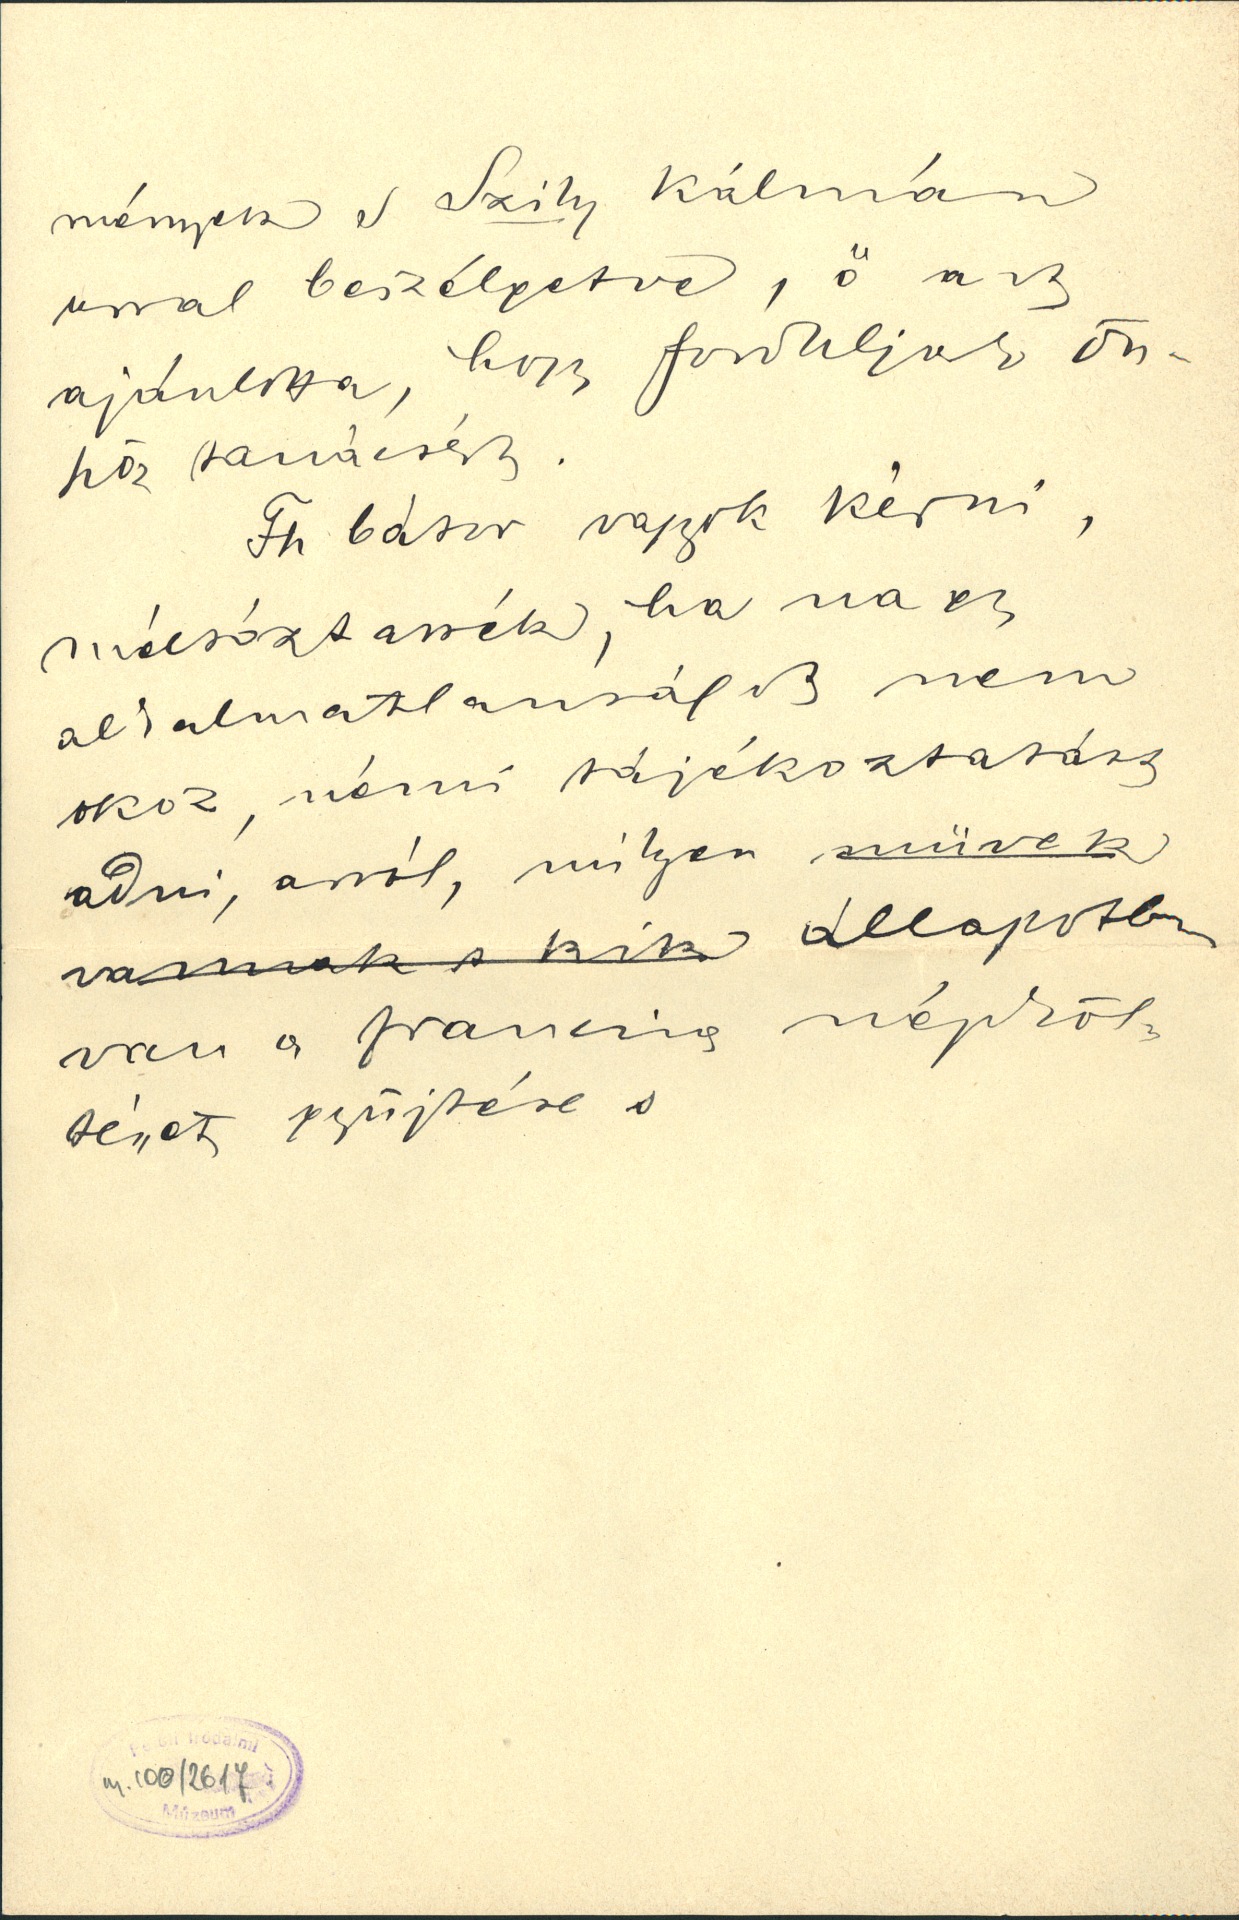 mények s Szily Kálmán
urral beszélgetve, ő azt
ajánlotta, hogy forduljak Ön-
höz tanácsért.
Th bátor vagyok kérni,
méltóztassék, ha nagy
alkalmatlanságot nem
okoz, némi tájékoztatást
adni, arról, milyen művek
vannak s kik állapotban
van a francia népköl-
tészet gyűjtése s
Petőfi Irodalmi
m. 100/2617
Múzeum